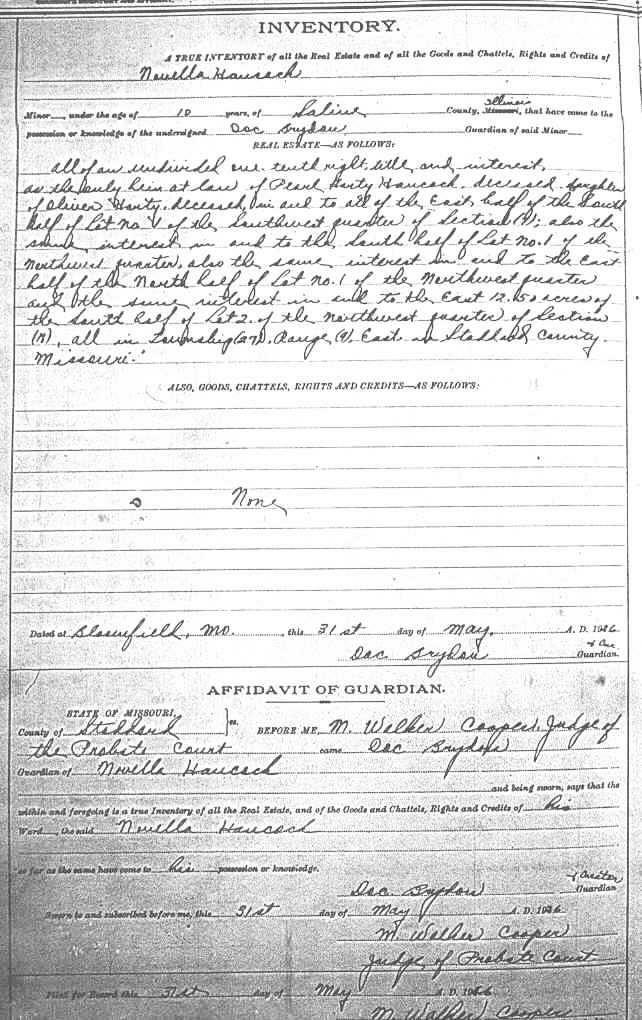 INVENTORY.
A TRUE INVENTORY of all the Real Estate and of all the Goods and Chattels, Rights and Credits of
Novella Hancock
Illinois
Minor, under the age of 10 years, of Saline County, Missouri, that have come to the
possession or knowledge of the undersigned Doc Brydon Guardian of said Minor
REAL ESTATE—AS FOLLOWS:
all of an undivided one-tenth right, title and interest,
as the only heir at law of Pearl Harty Hancock, deceased, daughter
of Oliver Harty, deceased, in and to all of the East half of the South
half of Lot no 1 of the Southwest quarter of Section (7); also the
same interest in and to the South half of Lot No. 1 of the
Northwest quarter, also the same interest in and to the East
half of the North half of Lot no. 1 of the Northwest quarter
and the same interest in and to the East 12.50 acres of
the South half of Lot 2. of the Northwest quarter of Section
(7), all in Township (27), Range (9), East in Stoddard County.
Missouri."
ALSO, GOODS, CHATTELS, RIGHTS AND CREDITS—AS FOLLOWS:
None
Dated at Bloomfield, Mo. , this 31st day of May, A. D. 1926
Doc Brydon Guardian.
AFFIDAVIT OF GUARDIAN.
STATE OF MISSOURI, } ss.
County of Stoddard BEFORE ME, M. Walker Cooper, Judge of
the Probate Court came Doc Brydon
Guardian of Novella Hancock
and being sworn, says that the
within and foregoing is a true Inventory of all the Real Estate, and of the Goods and Chattels, Rights and Credits of his
Ward, the said Novella Hancock
so far as the same have come to his possession or knowledge.
Doc Brydon & Curator Guardian
Sworn to and subscribed before me, this 31st day of May A. D. 1926
M. Walker Cooper
Judge of Probate Court
Filed for Record this 31st day of May A. D. 1926
M. Walker Cooper